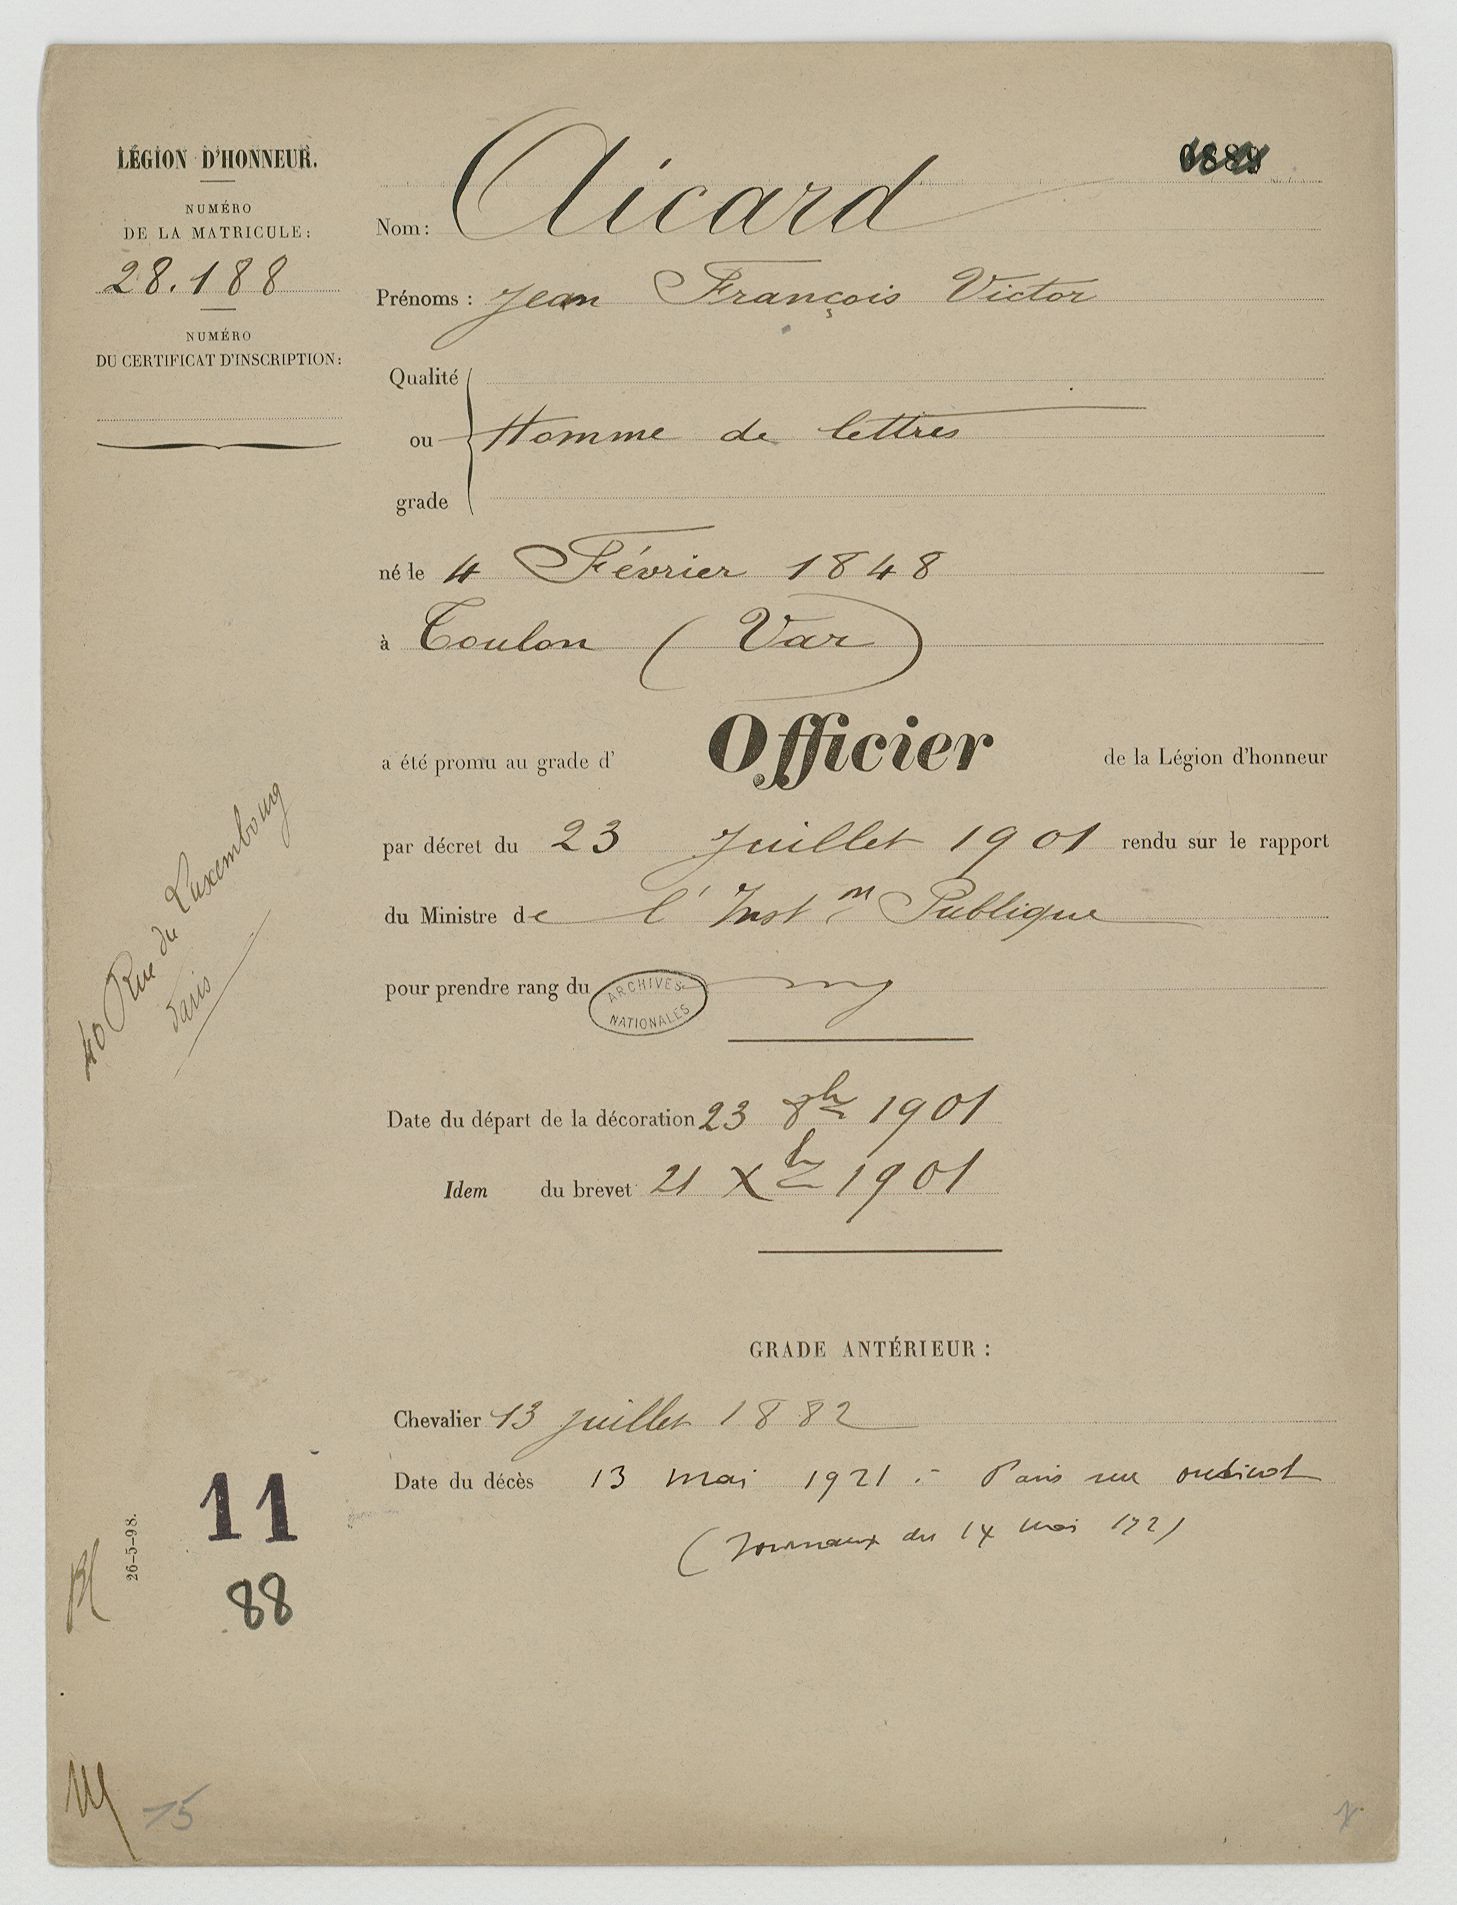 LÉGION D'HONNEUR.
NUMÉRO
DE LA MATRICULE:
28.188
NUMÉRO
DU CERTIFICAT D'INSCRIPTION:
Nom: Aicard
Prénoms : Jean François Victor
Qualité
ou Homme de lettres
grade
né le 4 Février 1848
à Toulon (Var)
a été promu au grade d' Officier de la Légion d'honneur
par décret du 23 Juillet 1901 rendu sur le rapport
du Ministre de l'Inst.n Publique
pour prendre rang du
ARCHIVES
NATIONALES
Date du départ de la décoration 23 8bre 1901
Idem du brevet 21 Xbre 1901
GRADE ANTÉRIEUR :
Chevalier 13 juillet 1882
Date du décès 13 mai 1921 :- Paris rue oudinot
(Journaux du 14 mai 1921
40 Rue du Luxembourg
Paris
11
88
26-5-98.
15